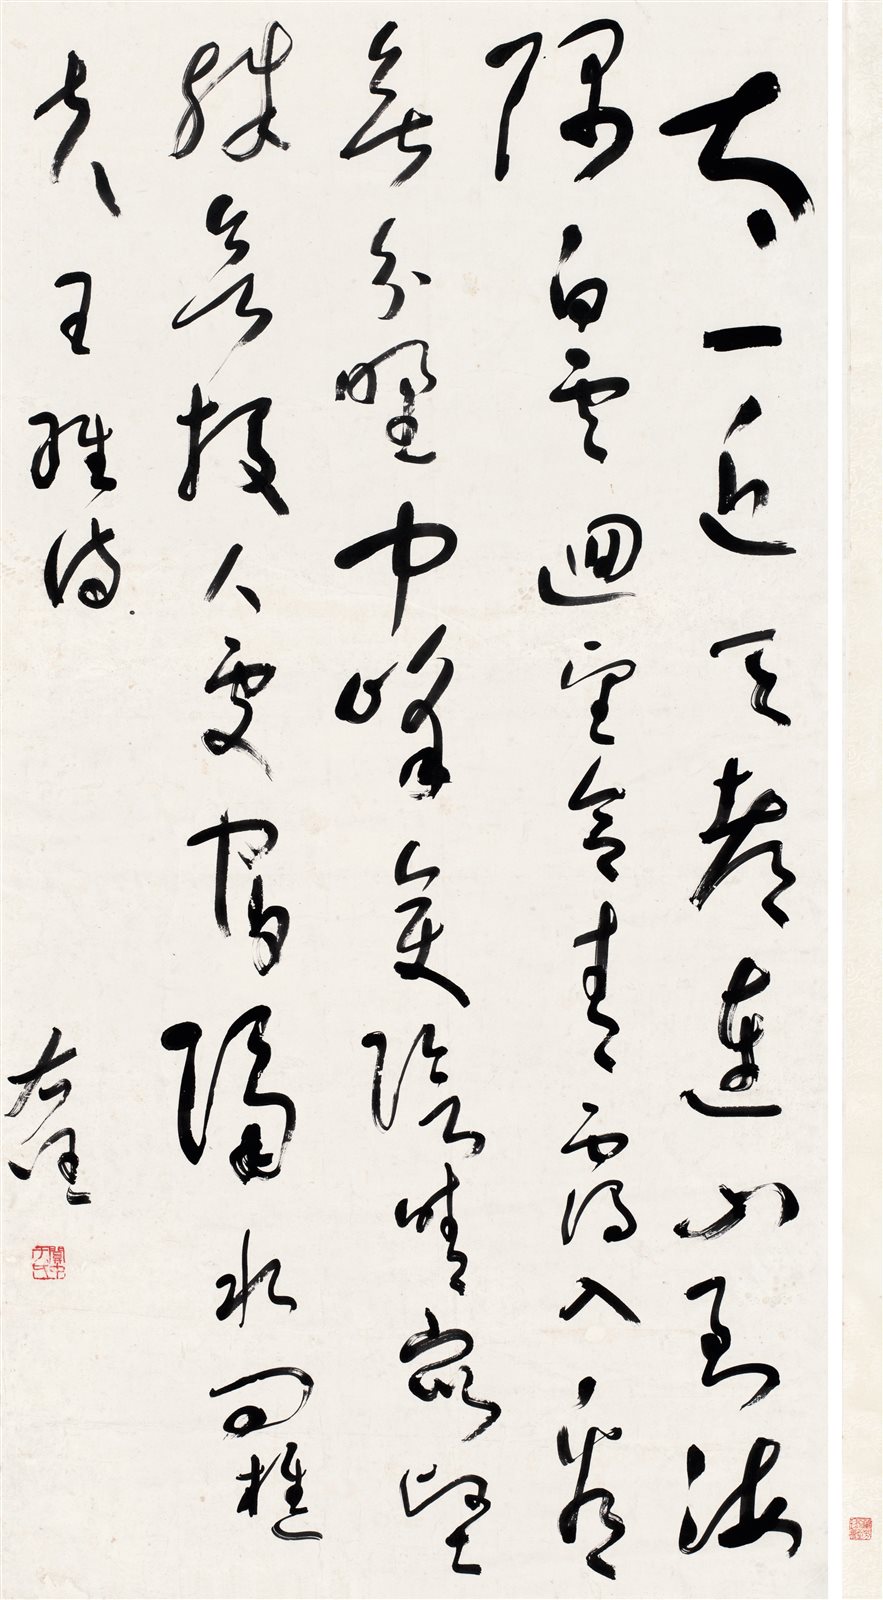 太一近天都連山到海
隅白雲迴望合青靄入看
無分野中峰變陰晴眾壑
殊欲投人處宿隔水問樵
夫王維詩
右任
關中于氏